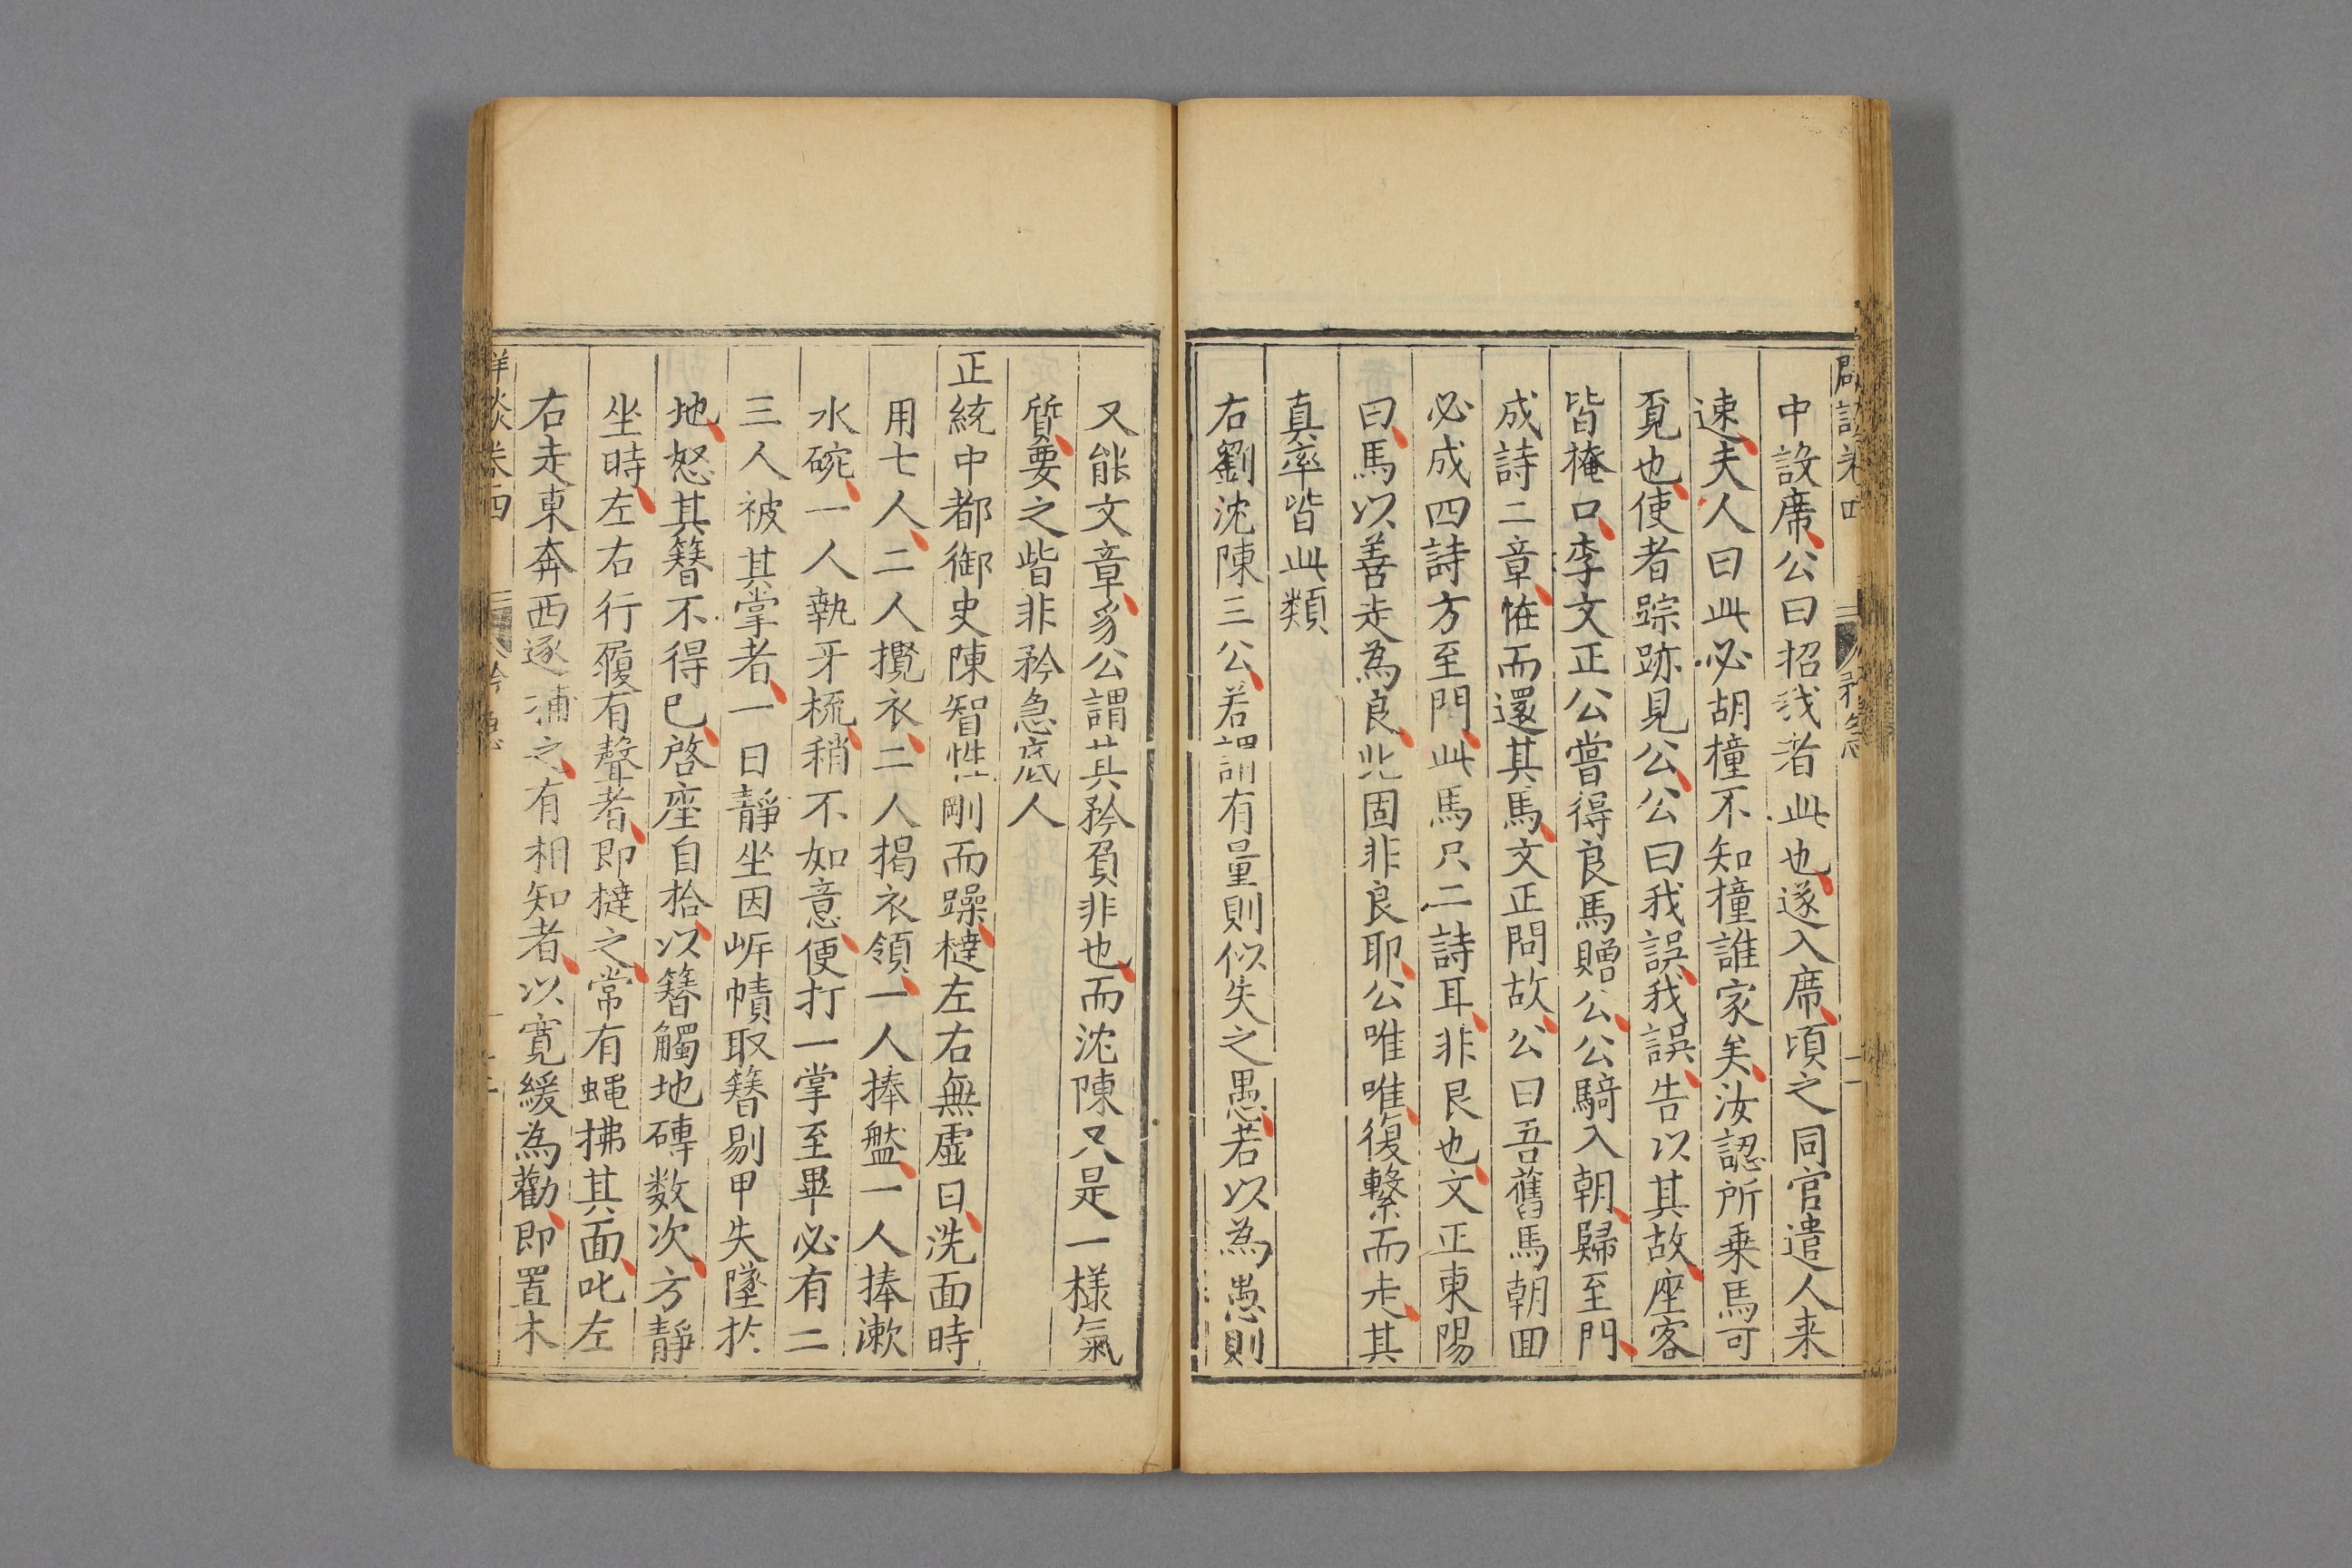 中設席公曰招我者此也遂入席頃之同官遣人来
速夫人曰此必胡撞不知撞誰家矣汝認所乗馬可
覓也使者踪跡見公公曰我誤我誤告以其故座客
皆掩口李文正公嘗得良馬贈公公騎入朝歸至門
成詩二章恠而還其馬文正問故公曰吾舊馬朝回
必成四詩方至門此馬只二詩耳非良也文正東陽
曰馬以善走為良此固非良耶公唯唯復繫而走其
真率皆此類
右劉沈陳三公若謂有量則似失之愚若以為愚則
又能文章豸公謂其矜負非也而沈陳又是一様氣
質要之皆非矜急底人
正統中都御史陳智性剛而躁撻左右無虛日洗面時
用七人二人攪衣二人揭衣領一人捧盤一人捧漱
水碗一人執牙梳稍不如意便打一掌至畢必有二
三人被其掌者一日靜坐因岸幘取簪剔甲失墜扵
地怒其簪不得已啓座自拾以簪觸地磚数次方靜
坐時左右行履有聲者即撻之常有蝇拂其面叱左
右走東奔西逐捕之有相知者以寛緩為勸即置木